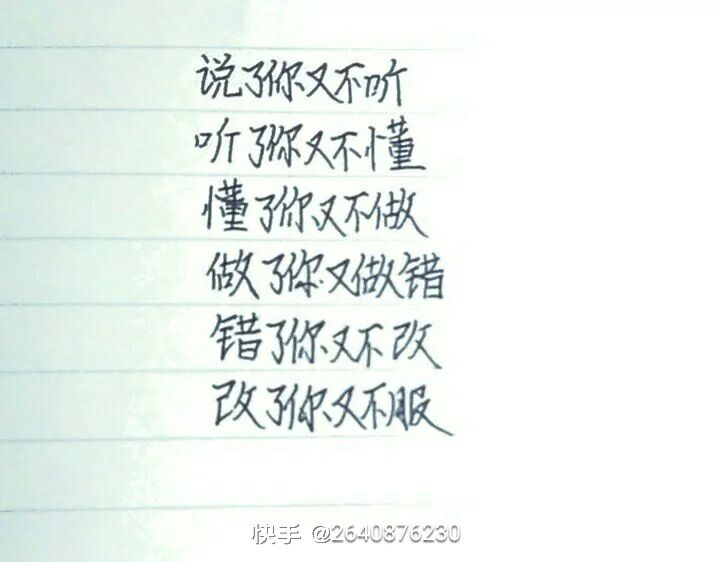 说了你又不听
听了你又不懂
懂了你又不做
做了你又做错
错了你又不改
改了你又不服
快手 @2640876230